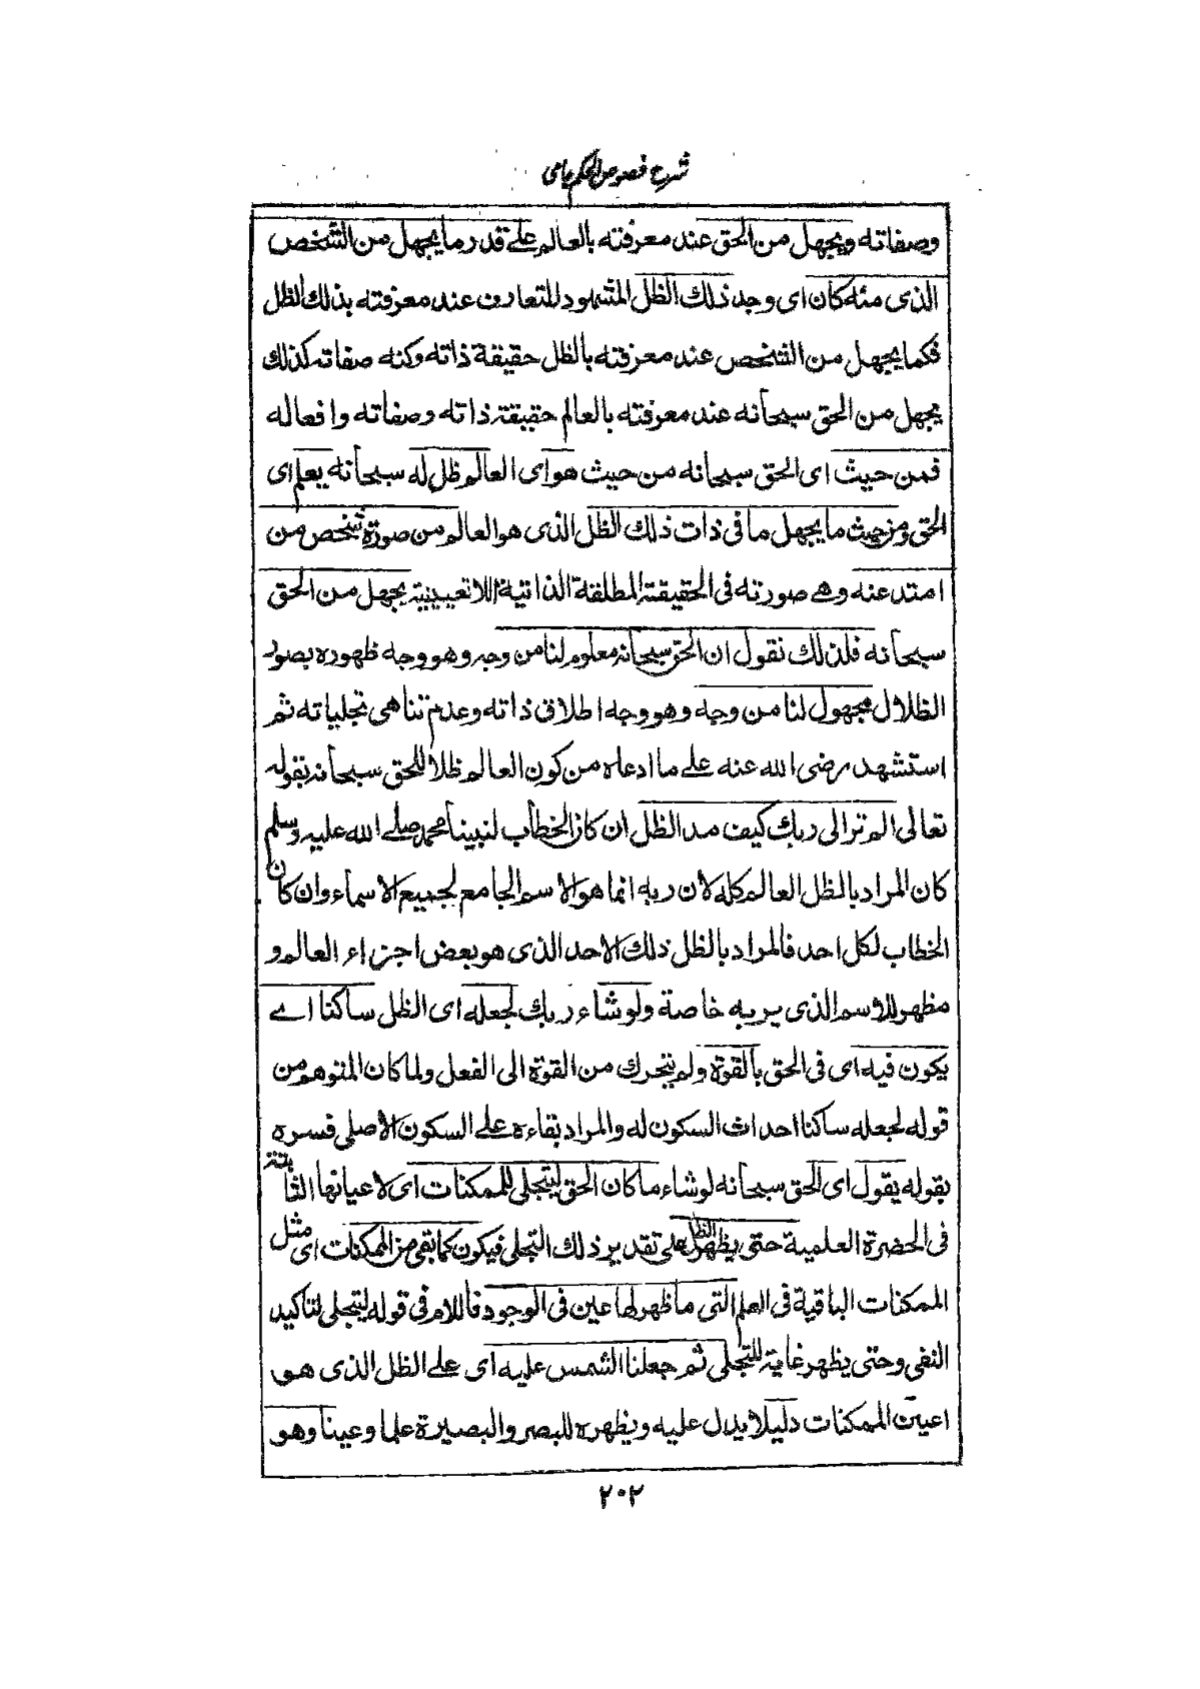 شرح فصوص الحكم جامى
وصفاته ويجهل من الحق عند معرفته بالعالم على قدر ما يجهل من الشخص
الذى منه كان اى وجد ذلك الظل المشهود المتعارف عند معرفته بذلك الظل
فكما يجهل من الشخص عند معرفته بالظل حقيقة ذاته وكنه صفاته كذلك
يجهل من الحق سبحانه عند معرفته بالعالم حقيقة ذاته وصفاته وافعاله
فمن حيث اى الحق سبحانه من حيث هو اى العالم ظل له سبحانه يعلم اى
الحق ومن حيث ما يجهل ما فى ذات ذلك الظل الذى هو العالم من صورة شخص من
امتد عنه وهے صورته فى الحقيقة المطلقة الذاتية اللاتعيينية يجهل من الحق
سبحانه فلذلك نقول ان الحق سبحانه معلوم لنا من وجه وهو وجه ظهوره بصور
الظلال مجهول لنا من وجه وهو وجه اطلاق ذاته وعدم تناهى تجلياته ثم
استشهد رضى الله عنه علے ما ادعاه من كون العالم ظلا للحق سبحانه بقوله
تعالى الم تر الى ربك كيف مد الظل ان كان الخطاب لنبينا محمد صلے الله عليه وسلم
كان المراد بالظل العالم كله لان ربه انما هو الاسم الجامع لجميع الاسماء وان كان
الخطاب لكل احد فالمراد بالظل ذلك الاحد الذى هو بعض اجزاء العالم و
مظهر للاسم الذى يربه خاصة ولو شاء ربك لجعله اى الظل ساكنا اے
يكون فيه اى فى الحق بالقوة ولم يتحرك من القوة الى الفعل ولما كان المتوهم من
قوله لجعله ساكنا احداث السكون له والمراد بقاءه علے السكون الاصلى فسره
بقوله يقول اى الحق سبحانه لو شاء ما كان الحق ليتجلى للممكنات اى لاعيانها الثابتة
فى الحضرة العلمية حتى يظهر الظل على تقدير ذلك التجلى فيكون كما بقى من الممكنات اى مثل
الممكنات الباقية فى العلم التى ما ظهر لها عين فى الوجود فاللام فى قوله ليتجلى لتاكيد
النفى وحتى يظهر غاية للتجلى ثم جعلنا الشمس عليه اى علے الظل الذى هو
اعين الممكنات دليلا يدل عليه ويظهره للبصر والبصيرة علما وعينا وهو
٢٠٢